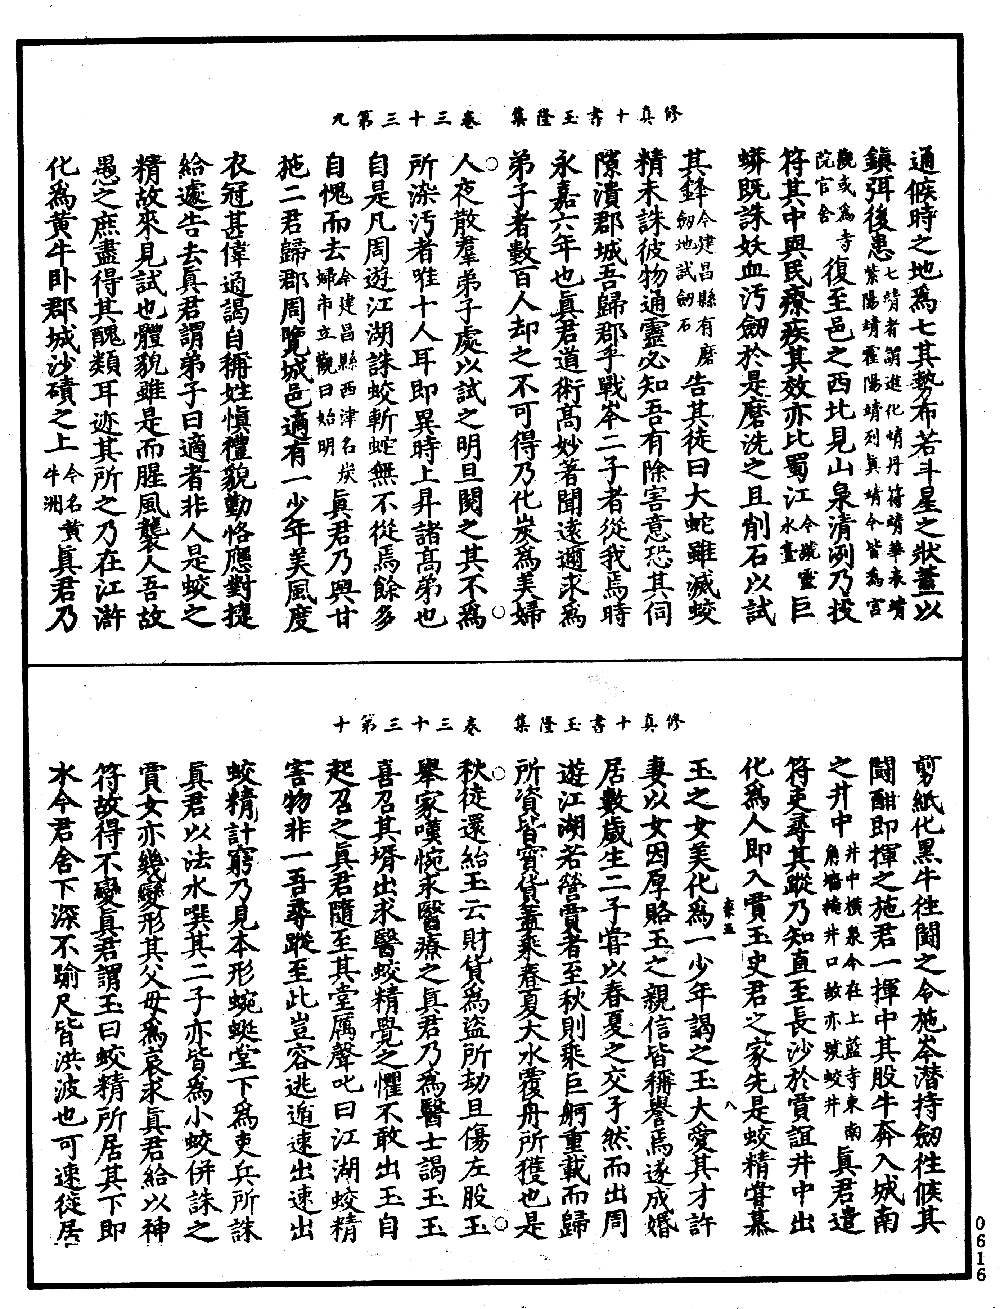 修真十書玉隆集　卷三十三第九
通候時之地爲七其勢布若斗星之狀蓋以
鎮弭後患七靖者謂進化靖丹符靖華表靖紫陽靖霍陽靖列真靖今皆爲宮
觀或爲寺院官舍復至邑之西北見山泉清冽乃投
符其中與民療疾其效亦比蜀江今號靈巨
蟒既誅妖血污劒於是磨洗之且削石以試
其鋒今建昌縣有磨劒池試劒石告其徒曰大蛇雖滅蛟
精未誅彼物通靈必知吾有除害意恐其伺
隙潰郡城吾歸郡乎戰岑二子者從我焉時
永嘉六年也眞君道術高妙著聞遠邇求爲
弟子者數百人却之不可得乃化炭爲美婦
人夜散羣弟子處以試之明旦閱之其不爲
所染污者唯十人耳即異時上昇諸高弟也
自是凡周遊江湖誅蛟斬蛇無不從焉餘多
自愧而去今建昌縣西津名炭婦市立觀曰始明眞君乃與甘
施二君歸郡周覽城邑適有一少年美風度
衣冠甚偉通謁自稱姓慎禮貌勤恪應對捷
給遽告去眞君謂弟子曰適者非人是蛟之
精故來見試也體貌雖是而腥風襲人吾故
愚之庶盡得其醜類耳迹其所之乃在江滸
化爲黃牛卧郡城沙磧之上今名黃牛洲眞君乃
修真十書玉隆集　卷三十三第十
剪紙化黑牛往鬪之令施岑潛持劒往候其
鬪酣即揮之施君一揮中其股牛奔入城南
之井中井中橫泉今在上藍寺東南角牆掩井口故亦號蛟井眞君遣
符吏尋其蹤乃知直至長沙於賈誼井中出
化爲人即入賈玉史君之家先是蛟精甞慕
玉之女美化爲一少年謁之玉大愛其才許
妻以女因厚賂玉之親信皆稱譽焉遂成婚
居數歲生二子甞以春夏之交孑然而出周
遊江湖若營賈者至秋則乘巨舸重載而歸
所資皆寶貨蓋乘春夏大水覆舟所獲也是
秋徒還紿玉云財貨爲盜所劫且傷左股玉
舉家嘆惋求醫療之眞君乃爲醫士謁玉玉
喜召其壻出求醫蛟精覺之懼不敢出玉自
起召之眞君隨至其堂厲聲叱曰江湖蛟精
害物非一吾尋蹤至此豈容逃遁速出速出
蛟精計窮乃見本形蜿蜒堂下爲吏兵所誅
眞君以法水噀其二子亦皆爲小蛟併誅之
賈女亦幾變形其父母爲哀求眞君給以神
符故得不變眞君謂玉曰蛟精所居其下即
水今君舍下深不踰尺皆洪波也可速徙居
0616